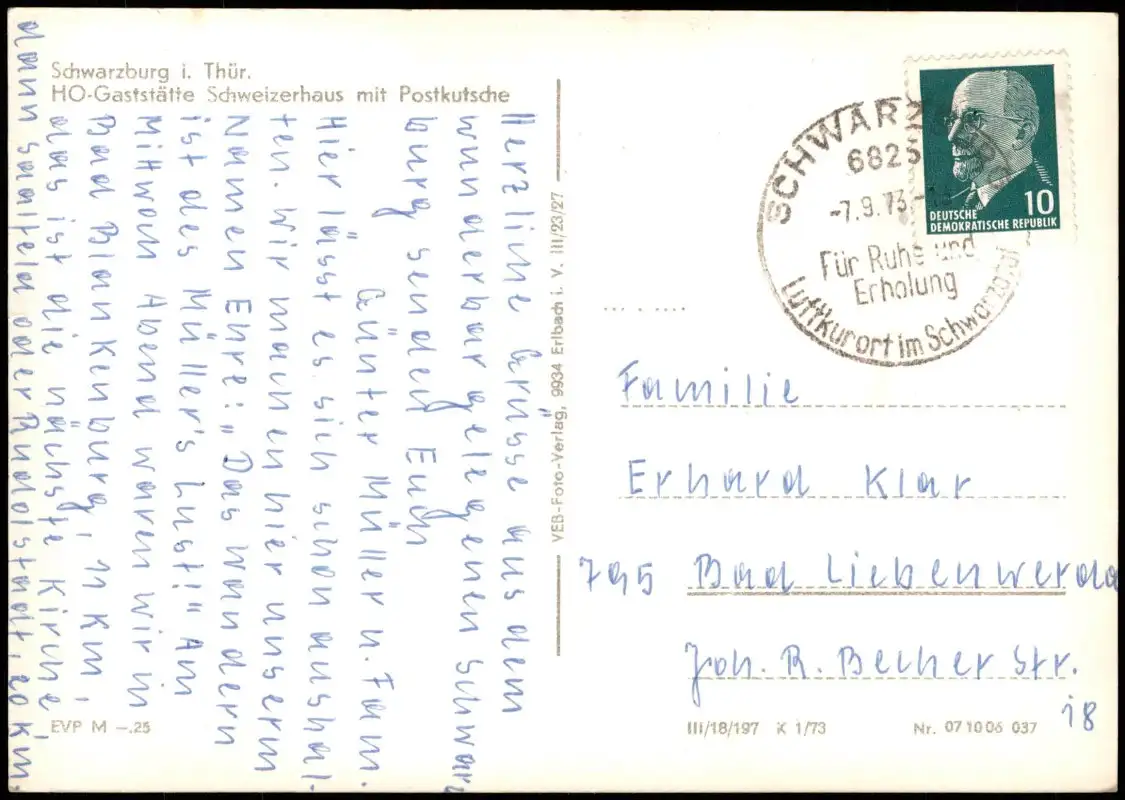 Schwarzburg i. Thür.
HO-Gaststätte Schweizerhaus mit Postkutsche
Herzliche Grüsse aus dem
wunderbar gelegenen Schwarz
burg senden Euch
Günter Müller u. Fam.
Hier lässt es sich schon aushal-
ten. Wir machen hier unserm
Namen Ehre: „Das Wandern
ist des Müller's Lust!" Am
Mittwoch Abend waren wir in
Bad Blankenburg, 11 Km,
das ist die nächste Kirche
dann Saalfeld oder Rudolstadt, 20 Km.
EVP M –.25
VEB-Foto-Verlag, 9934 Erlbach i. V. III/23/27
SCHWARZBURG
6825
-7.9.73-
Für Ruhe und
Erholung
Luftkurort im Schwarzatal
10
DEUTSCHE
DEMOKRATISCHE REPUBLIK
Familie
Erhard Klar
795 Bad Liebenwerda
Joh. R. Becher Str.
18
III/18/197 K 1/73
Nr. 07 10 06 037